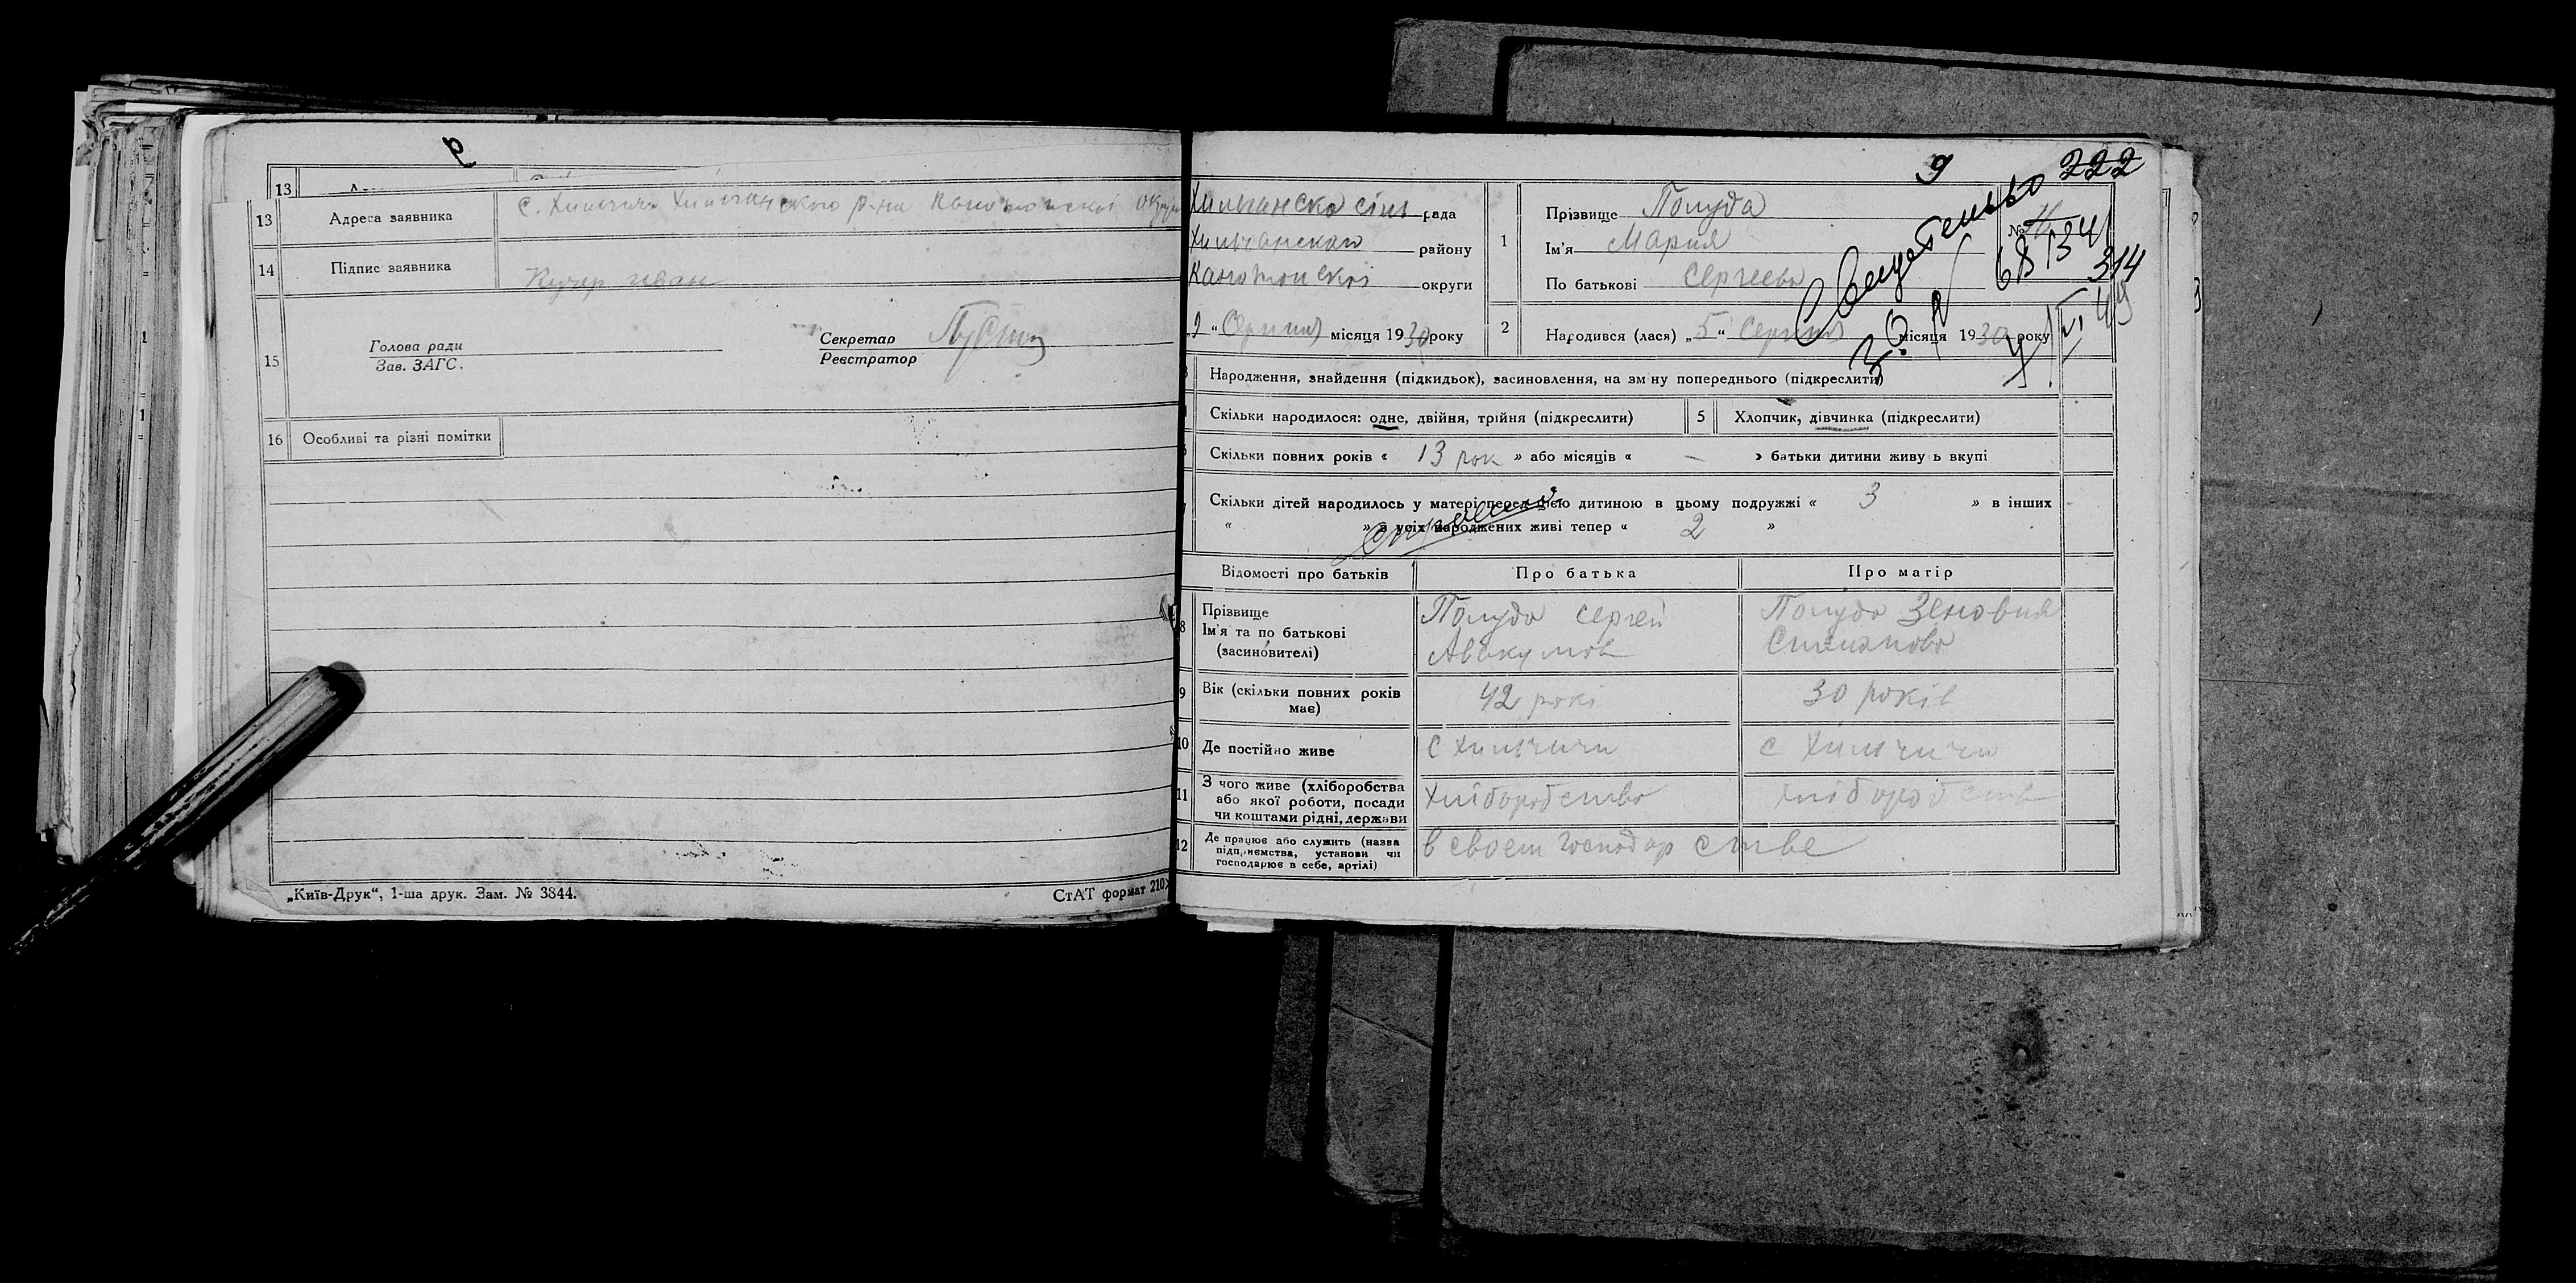 13
13 Адреса заявника с. Хильчичи Хильчанского р-на
14 Підпис заявника Кучер Иван
15 Голова ради
Зав. ЗАГС.
Секретар
Реєстратор
16 Особливі та різні помітки
„Київ-Друк“, 1-ша друк. Зам. № 3844. СтАТ формат 210×
9 222
Свидетельство
Хильчанска сіль рада
Хильчанского району
округи
Серпня місяця 1930 року
1 Прізвище Полуда
Ім'я Мария
По батькові Сергеевна
№
68134
314
2 Народився (лася) „5“ Серпня місяця 1930 року
Народження, знайдення (підкидьок), засиновлення, на зм ну попереднього (підкреслити)
Скільки народилося: одне, двійня, трійня (підкреслити) 5 Хлопчик, дівчинка (підкреслити)
Скільки повних років « 13 рок » або місяців « — » батьки дитини живу ь вкупі
Скільки дітей народилось у матері перед цією дитиною в цьому подружжі « 3 » в інших
« » з усіх народжених живі тепер « 2 »
Відомості про батьків Про батька Про матір
8 Прізвище
Ім'я та по батькові
(засиновителі)
Полуда Сергей
Авакумов
Полуда Зеновия
Степанова
9 Вік (скільки повних років
має)
42 рокі 30 років
10 Де постійно живе с Хильчичи с Хильчичи
11 З чого живе (хліборобства
або якої роботи, посади
чи коштами рідні, держави
Хліборобство хліборобств
12 Де працює або служить (назва
підприємства, установи чи
господарює в себе, артілі)
в своем господарстве